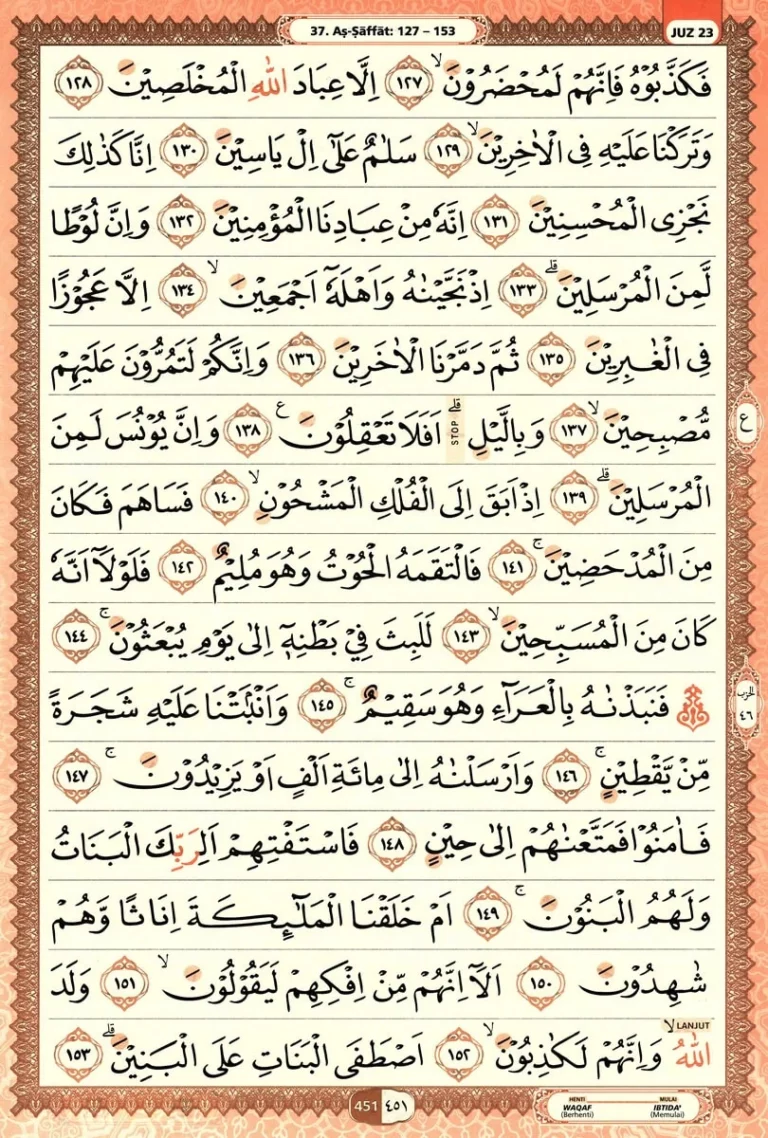 37. Aṣ-Ṣāffāt: 127 – 153
JUZ 23
فَكَذَّبُوْهُ فَاِنَّهُمْ لَمُحْضَرُوْنَۙ ١٢٧ اِلَّا عِبَادَ اللّٰهِ الْمُخْلَصِيْنَ ١٢٨
وَتَرَكْنَا عَلَيْهِ فِى الْاٰخِرِيْنَۙ ١٢٩ سَلٰمٌ عَلٰٓى اِلْ يَاسِيْنَ ١٣٠ اِنَّا كَذٰلِكَ
نَجْزِى الْمُحْسِنِيْنَ ١٣١ اِنَّهٗ مِنْ عِبَادِنَا الْمُؤْمِنِيْنَ ١٣٢ وَاِنَّ لُوْطًا
لَّمِنَ الْمُرْسَلِيْنَۗ ١٣٣ اِذْ نَجَّيْنٰهُ وَاَهْلَهٗٓ اَجْمَعِيْنَۙ ١٣٤ اِلَّا عَجُوْزًا
فِى الْغٰبِرِيْنَ ١٣٥ ثُمَّ دَمَّرْنَا الْاٰخَرِيْنَ ١٣٦ وَاِنَّكُمْ لَتَمُرُّوْنَ عَلَيْهِمْ
مُّصْبِحِيْنَۙ ١٣٧ وَبِالَّيْلِۗ STOP اَفَلَا تَعْقِلُوْنَ ࣖ ١٣٨ وَاِنَّ يُوْنُسَ لَمِنَ
ع
الْمُرْسَلِيْنَۗ ١٣٩ اِذْ اَبَقَ اِلَى الْفُلْكِ الْمَشْحُوْنِۙ ١٤٠ فَسَاهَمَ فَكَانَ
مِنَ الْمُدْحَضِيْنَۚ ١٤١ فَالْتَقَمَهُ الْحُوْتُ وَهُوَ مُلِيْمٌ ١٤٢ فَلَوْلَآ اَنَّهٗ
كَانَ مِنَ الْمُسَبِّحِيْنَۙ ١٤٣ لَلَبِثَ فِيْ بَطْنِهٖٓ اِلٰى يَوْمِ يُبْعَثُوْنَۚ ١٤٤
۞ فَنَبَذْنٰهُ بِالْعَرَاۤءِ وَهُوَ سَقِيْمٌۚ ١٤٥ وَاَنْۢبَتْنَا عَلَيْهِ شَجَرَةً
الحزب
٤٦
مِّنْ يَّقْطِيْنٍۚ ١٤٦ وَاَرْسَلْنٰهُ اِلٰى مِائَةِ اَلْفٍ اَوْ يَزِيْدُوْنَۚ ١٤٧
فَاٰمَنُوْا فَمَتَّعْنٰهُمْ اِلٰى حِيْنٍ ١٤٨ فَاسْتَفْتِهِمْ اَلِرَبِّكَ الْبَنَاتُ
وَلَهُمُ الْبَنُوْنَۚ ١٤٩ اَمْ خَلَقْنَا الْمَلٰۤىِٕكَةَ اِنَاثًا وَّهُمْ
شٰهِدُوْنَ ١٥٠ اَلَآ اِنَّهُمْ مِّنْ اِفْكِهِمْ لَيَقُوْلُوْنَۙ ١٥١ وَلَدَ
اللّٰهُ ۙ LANJUT وَاِنَّهُمْ لَكٰذِبُوْنَۙ ١٥٢ اَصْطَفَى الْبَنَاتِ عَلَى الْبَنِيْنَۗ ١٥٣
451 ٤٥١
HENTI MULAI
WAQAF IBTIDA'
(Berhenti) (Memulai)